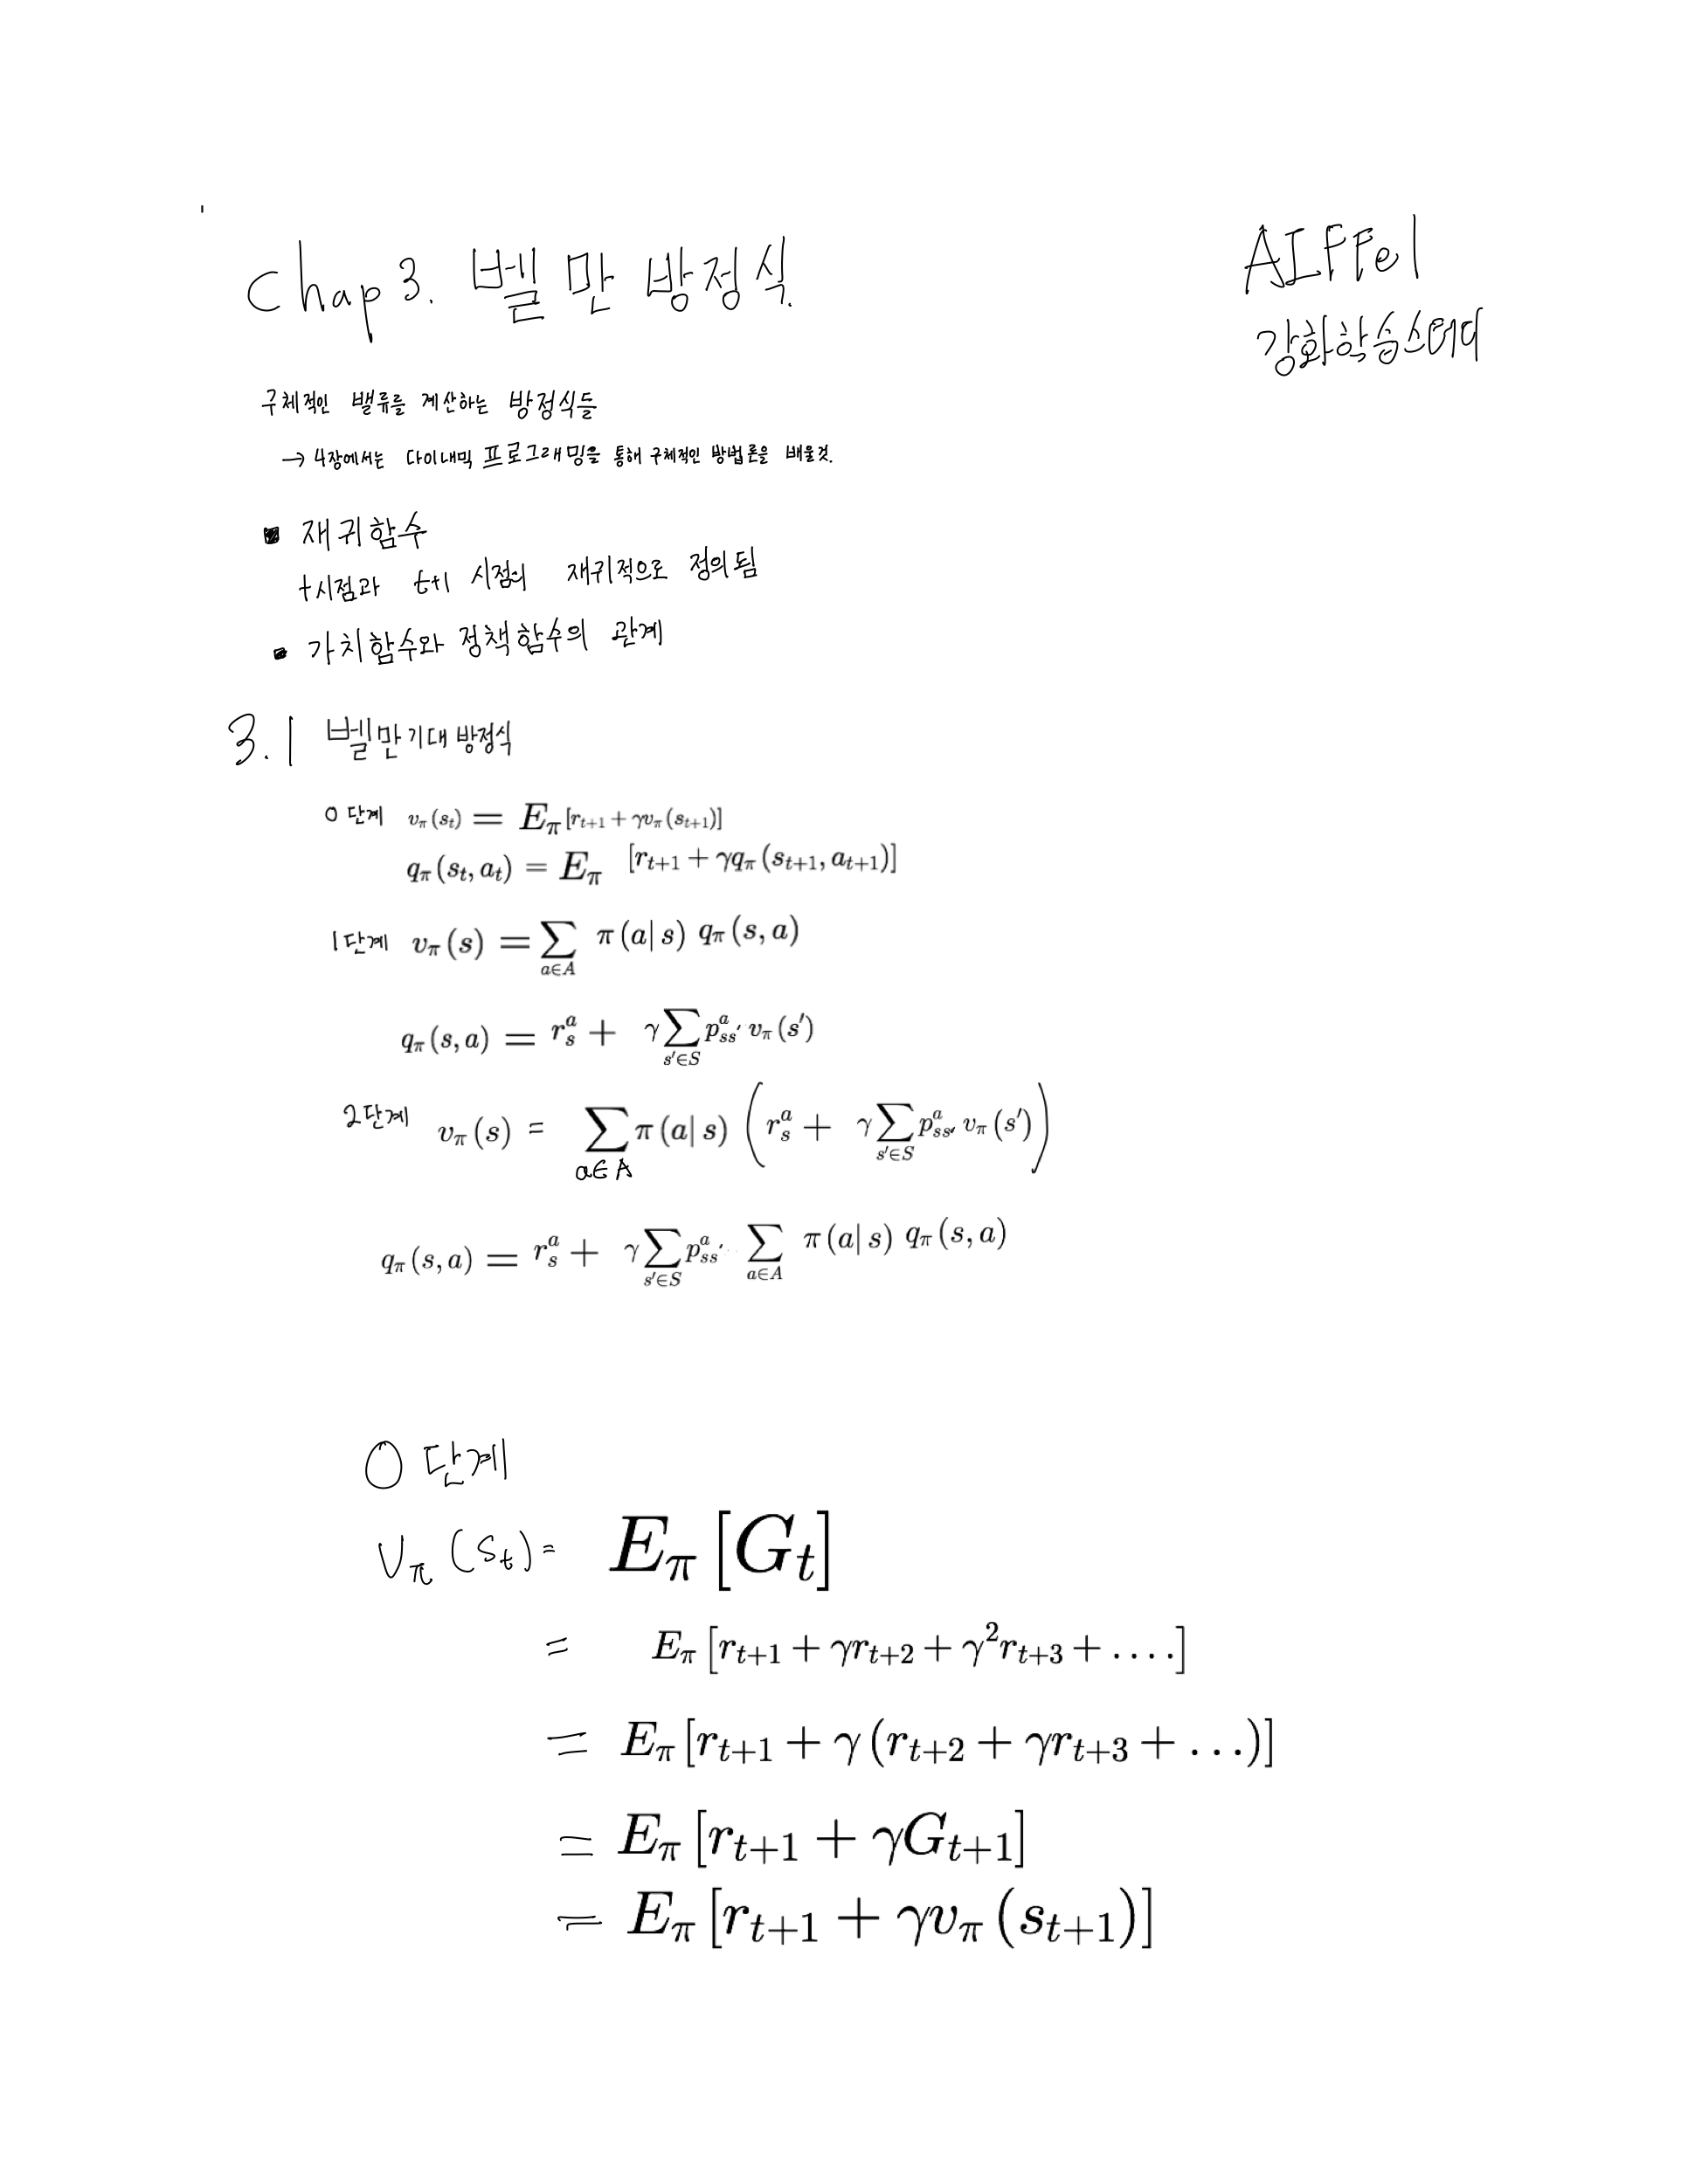 Chap 3. 벨만 방정식.
AIFFel
강화학습스터디
구체적인 밸류를 계산하는 방정식들
→ 4장에서는 다이내믹 프로그래밍을 통해 구체적인 방법론을 배울것.
■ 재귀함수
t시점과 t+1 시점의 재귀적으로 정의됨
▪ 가치함수와 정책함수의 관계
3.1 벨만기대 방정식
0 단계 v_π(s_t) = E_π[r_{t+1} + γv_π(s_{t+1})]
q_π(s_t, a_t) = E_π [r_{t+1} + γq_π(s_{t+1}, a_{t+1})]
1단계 v_π(s) = ∑_{a∈A} π(a|s) q_π(s, a)
q_π(s, a) = r_s^a + γ∑_{s′∈S} p_{ss′}^a v_π(s′)
2단계 v_π(s) = ∑_{a∈A} π(a|s) (r_s^a + γ∑_{s′∈S} p_{ss′}^a v_π(s′))
q_π(s, a) = r_s^a + γ∑_{s′∈S} p_{ss′}^a ∑_{a∈A} π(a|s) q_π(s, a)
0 단계
V_π(s_t) = E_π[G_t]
= E_π[r_{t+1} + γr_{t+2} + γ^2r_{t+3} + ....]
= E_π[r_{t+1} + γ(r_{t+2} + γr_{t+3} + ...)]
= E_π[r_{t+1} + γG_{t+1}]
= E_π[r_{t+1} + γv_π(s_{t+1})]